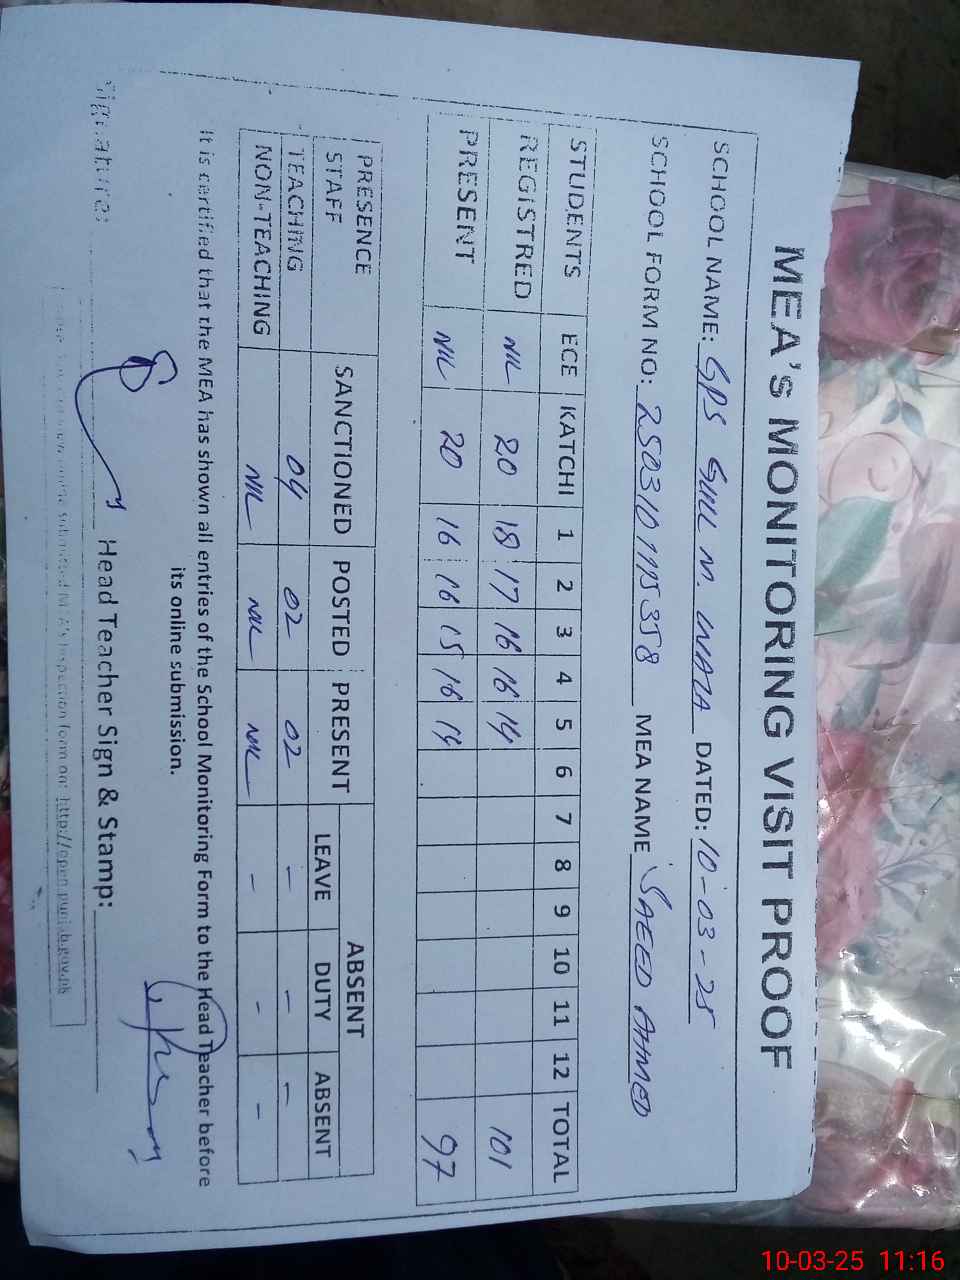 MEA's MONITORING VISIT PROOF
SCHOOL NAME: GPS GULL M. WAZA DATED: 10-03-25
SCHOOL FORM NO: MEA NAME SAEED AHMED
STUDENTS ECE KATCHI 1 2 3 4 5 6 7 8 9 10 11 12 TOTAL
REGISTRED NIL 20 18 17 16 16 14 101
PRESENT NIL 20 16 16 15 16 14 97
PRESENCE STAFF SANCTIONED POSTED PRESENT ABSENT
LEAVE DUTY ABSENT
TEACHING 04 02 02 - - -
NON-TEACHING NIL NIL NIL - - -
It is certified that the MEA has shown all entries of the School Monitoring Form to the Head Teacher before
its online submission.
Signature: Head Teacher Sign & Stamp:
submitted MEA's Inspection form on: http://open.punjab.gov.pk
10-03-25 11:16